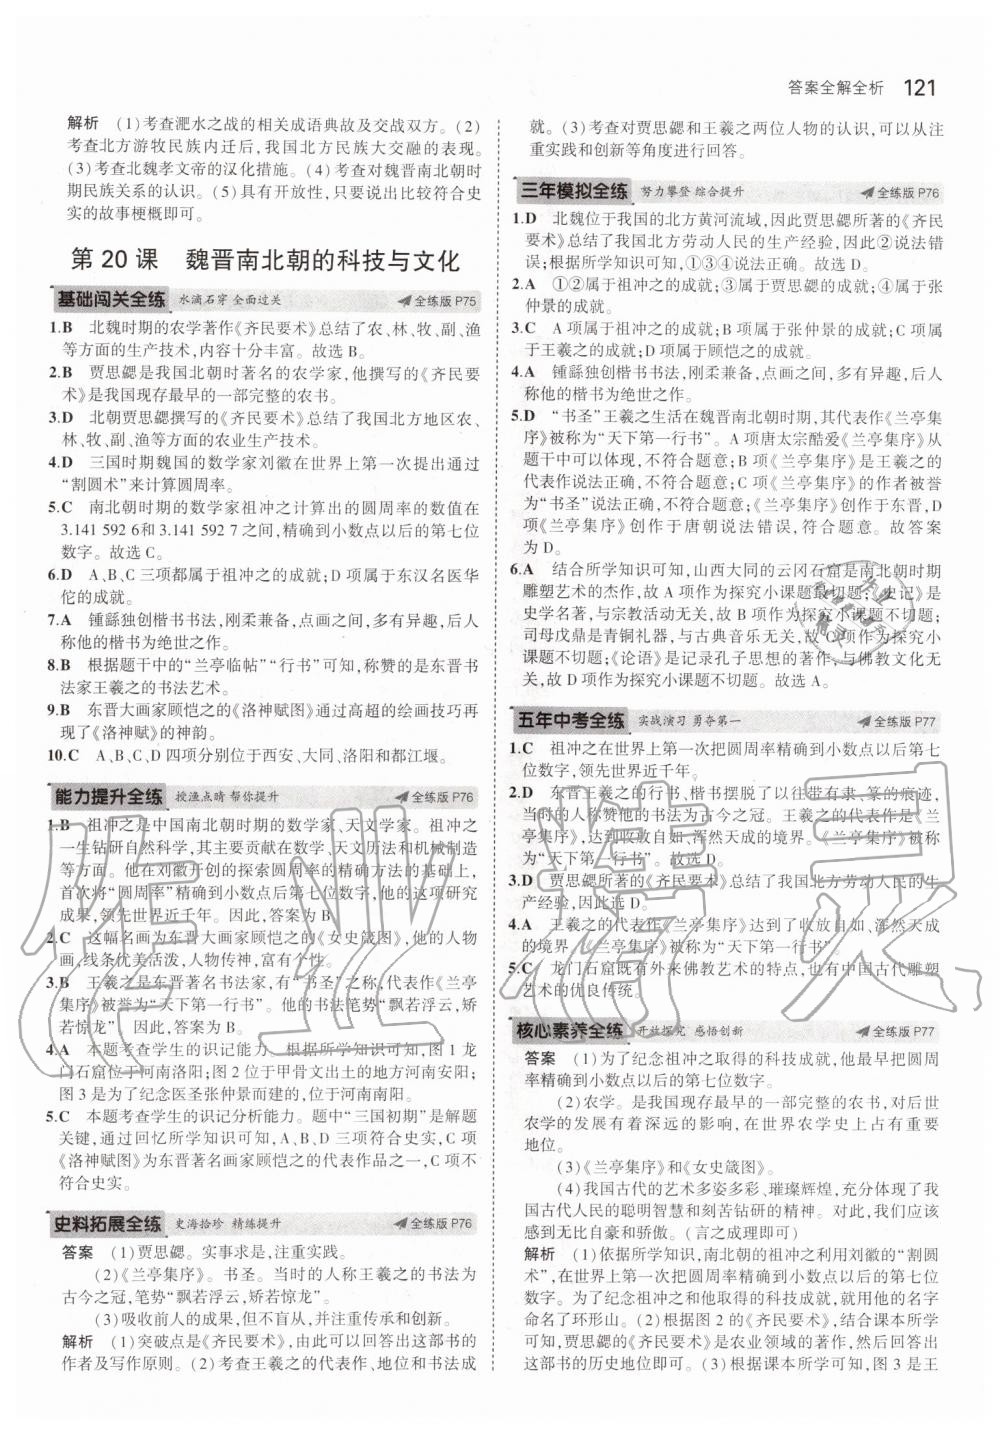 答案全解全析 121
解析 (1)考查淝水之战的相关成语典故及交战双方。(2)
考查北方游牧民族内迁后,我国北方民族大交融的表现。
(3)考查北魏孝文帝的汉化措施。(4)考查对魏晋南北朝时
期民族关系的认识。(5)具有开放性,只要说出比较符合史
实的故事梗概即可。
第20课 魏晋南北朝的科技与文化
基础闯关全练 水滴石穿 全面过关 全练版 P75
1.B 北魏时期的农学著作《齐民要术》总结了农、林、牧、副、渔
等方面的生产技术,内容十分丰富。故选 B。
2.B 贾思勰是我国北朝时著名的农学家,他撰写的《齐民要
术》是我国现存最早的一部完整的农书。
3.D 北朝贾思勰撰写的《齐民要术》总结了我国北方地区农、
林、牧、副、渔等方面的农业生产技术。
4.D 三国时期魏国的数学家刘徽在世界上第一次提出通过
“割圆术”来计算圆周率。
5.C 南北朝时期的数学家祖冲之计算出的圆周率的数值在
3.141 592 6和 3.141 592 7 之间,精确到小数点以后的第七位
数字。故选 C。
6.D A、B、C 三项都属于祖冲之的成就;D 项属于东汉名医华
佗的成就。
7.A 锺繇独创楷书书法,刚柔兼备,点画之间,多有异趣,后人
称他的楷书为绝世之作。
8.B 根据题干中的“兰亭临帖”“行书”可知,称赞的是东晋书
法家王羲之的书法艺术。
9.B 东晋大画家顾恺之的《洛神赋图》通过高超的绘画技巧再
现了《洛神赋》的神韵。
10.C A、B、C、D 四项分别位于西安、大同、洛阳和都江堰。
能力提升全练 授渔点睛 帮你提升 全练版 P76
1.B 祖冲之是中国南北朝时期的数学家、天文学家。祖冲之
一生钻研自然科学,其主要贡献在数学、天文历法和机械制造
等方面。他在刘徽开创的探索圆周率的精确方法的基础上,
首次将“圆周率”精确到小数点后第七位数字,他的这项研究
成果,领先世界近千年。因此,答案为 B。
2.C 这幅名画为东晋大画家顾恺之的《女史箴图》,他的人物
画,线条优美活泼,人物传神,富有个性。
3.B 王羲之是东晋著名书法家,有“书圣”之称,代表作《兰亭
集序》被誉为“天下第一行书”。他的书法笔势“飘若浮云,矫
若惊龙”。因此,答案为 B。
4.A 本题考查学生的识记能力。根据所学知识可知,图 1 龙
门石窟位于河南洛阳;图 2 位于甲骨文出土的地方河南安阳;
图 3 是为了纪念医圣张仲景而建的,位于河南南阳。
5.C 本题考查学生的识记分析能力。题中“三国初期”是解题
关键,通过回忆所学知识可知,A、B、D 三项符合史实,C 项
《洛神赋图》为东晋著名画家顾恺之的代表作品之一,C 项不
符合史实。
史料拓展全练 史海拾珍 精练提升 全练版 P76
答案 (1)贾思勰。实事求是,注重实践。
(2)《兰亭集序》。书圣。当时的人称王羲之的书法为
古今之冠,笔势“飘若浮云,矫若惊龙”。
(3)吸收前人的成果,但不盲从,并注重传承和创新。
解析 (1)突破点是《齐民要术》,由此可以回答出这部书的
作者及写作原则。(2)考查王羲之的代表作、地位和书法成
就。(3)考查对贾思勰和王羲之两位人物的认识,可以从注
重实践和创新等角度进行回答。
三年模拟全练 努力攀登 综合提升 全练版 P76
1.D 北魏位于我国的北方黄河流域,因此贾思勰所著的《齐民
要术》总结了我国北方劳动人民的生产经验,因此②说法错
误;根据所学知识可知,①③④说法正确。故选 D。
2.A ①②属于祖冲之的成就;③属于贾思勰的成就;④属于张
仲景的成就。
3.C A 项属于祖冲之的成就;B 项属于张仲景的成就;C 项属
于王羲之的成就;D 项属于顾恺之的成就。
4.A 锺繇独创楷书书法,刚柔兼备,点画之间,多有异趣,后人
称他的楷书为绝世之作。
5.D “书圣”王羲之生活在魏晋南北朝时期,其代表作《兰亭集
序》被称为“天下第一行书”。A 项唐太宗酷爱《兰亭集序》从
题干中可以体现,不符合题意;B 项《兰亭集序》是王羲之的
代表作说法正确,不符合题意;C 项《兰亭集序》的作者被誉
为“书圣”说法正确,不符合题意。《兰亭集序》创作于东晋,D
项《兰亭集序》创作于唐朝说法错误,符合题意。故答案
为 D。
6.A 结合所学知识可知,山西大同的云冈石窟是南北朝时期
雕塑艺术的杰作,故 A 项作为探究小课题最切题;《史记》是
史学名著,与宗教活动无关,故 B 项作为探究小课题不切题;
司母戊鼎是青铜礼器,与古典音乐无关,故 C 项作为探究小
课题不切题;《论语》是记录孔子思想的著作,与佛教文化无
关,故 D 项作为探究小课题不切题。故选 A。
五年中考全练 实战演习 勇夺第一 全练版 P77
1.C 祖冲之在世界上第一次把圆周率精确到小数点以后第七
位数字,领先世界近千年。
2.D 东晋王羲之的行书、楷书摆脱了以往带有隶、篆的痕迹,
当时的人称赞他的书法为古今之冠。王羲之的代表作是《兰
亭集序》,达到了收放自如、浑然天成的境界。《兰亭集序》被称
为“天下第一行书”。故选 D。
3.D 贾思勰所著的《齐民要术》总结了我国北方劳动人民的生
产经验,因此选 D。
4.A 王羲之的代表作《兰亭集序》达到了收放自如、浑然天成
的境界,《兰亭集序》被称为“天下第一行书”。
5.C 龙门石窟既有外来佛教艺术的特点,也有中国古代雕塑
艺术的优良传统。
核心素养全练 开放探究 感悟创新 全练版 P77
答案 (1)为了纪念祖冲之取得的科技成就,他最早把圆周
率精确到小数点以后的第七位数字。
(2)农学。是我国现存最早的一部完整的农书,对后世
农学的发展有着深远的影响,在世界农学史上占有重要
地位。
(3)《兰亭集序》和《女史箴图》。
(4)我国古代的艺术多姿多彩、璀璨辉煌,充分体现了我
国古代人民的聪明智慧和刻苦钻研的精神。对此,我们感
到无比自豪和骄傲。(言之成理即可)
解析 (1)依据所学知识,南北朝的祖冲之利用刘徽的“割圆
术”,在世界上第一次把圆周率精确到小数点以后的第七位
数字。为了纪念祖冲之和他取得的科技成就,就用他的名字
命名了环形山。(2)根据图 2 的《齐民要术》,结合课本所学
可知,贾思勰的《齐民要术》是农业领域的著作,然后回答出
这部书的历史地位即可。(3)根据课本所学可知,图 3 是王
作业精灵